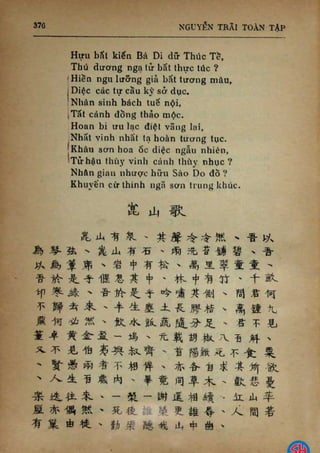 376 NGUYỄN TRÃI TOÀN TẬP
Hựu bất kiến Bá Di dữ Thúc Tề,
Thú dương ngạ tử bất thực túc ?
Hiền ngu lưỡng giả bất tương mâu,
Diệc các tự cầu kỳ sở dục.
Nhân sinh bách tuế nội,
Tất cánh đồng thảo mộc.
Hoan bi ưu lạc điệt vãng lai,
Nhất vinh nhất tạ hoàn tương tục.
Khâu sơn hoa ốc diệc ngẫu nhiên,
Tử hậu thùy vinh cánh thùy nhục ?
Nhân gian nhược hữu Sào Do đồ ?
Khuyến cừ thính ngã sơn trung khúc.
崑山歌
崑山有泉、其聲冷冷然、吾以
為琴弦、崑山有石、雨洗苔鋪碧、吾
以為簟席、岩中有松、萬里翠童童、
吾於是乎偃息其中、林中有竹、千畝
印寒綠、吾於是乎吟嘯其側、問君何
不歸去來、半生塵土長膠梏、萬鍾九
鼎何必然、飲水飯蔬隨分足、君不見
董卓黃金盈一塢、元載胡椒八百斛、
又不見伯夷與叔齊、首陽餓死不食粟
、賢愚兩者不相侔、亦各自求其所欲
、人生百歲內、畢竟同草木、歡悲憂
樂迭往來、一榮一謝還相續、丘山華
屋亦偶然、死後誰榮更誰辱、人間若
有巢由徒、勸渠聽我山中曲、